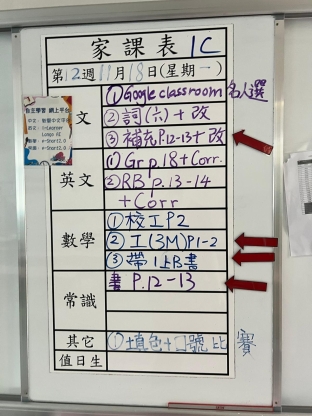 家課表 1C
第12週11月18日(星期一)
文
①Google classroom名人選
②詞(六)+改
③補充P.12-13+改
英文
①Gr p.18+Corr.
②RB p.13-14
+Corr
數學
①校工P2
②工(3M)P1-2
③帶1上B書
常識
書 P.12-13
其它
①填色+口號比賽
值日生
自主學習 網上平台